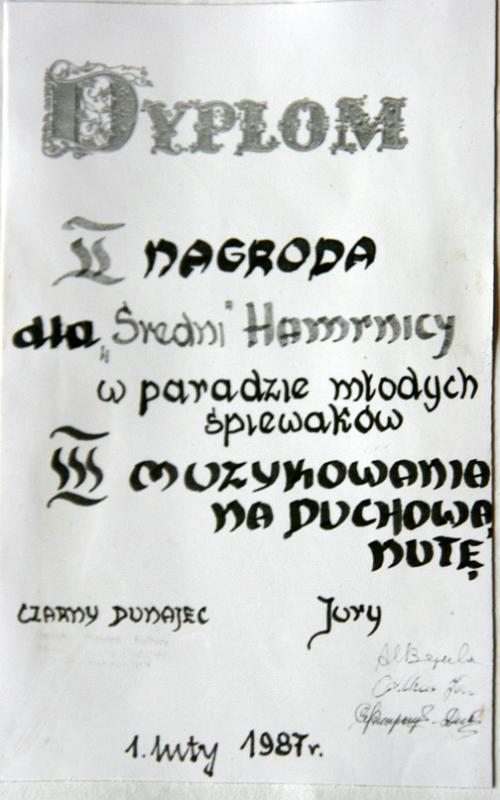 DYPLOM
II NAGRODA
dla „Średni" Hamrnicy
w paradzie młodych
śpiewaków
III MUZYKOWANIA
NA DUCHOWĄ
NUTĘ
CZARNY DUNAJEC Jury
1. luty 1987r.